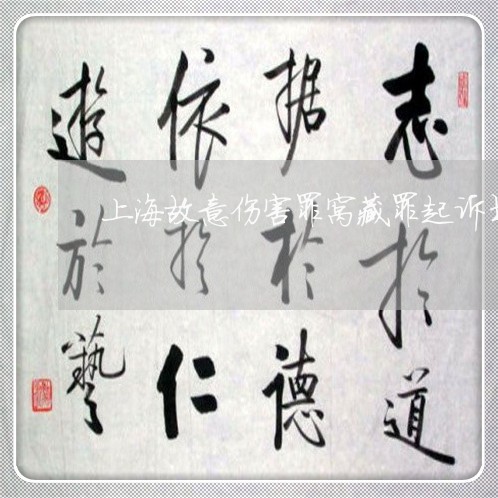 志於道
据於德
依於仁
遊於藝
上海故意伤害罪窝藏罪起诉